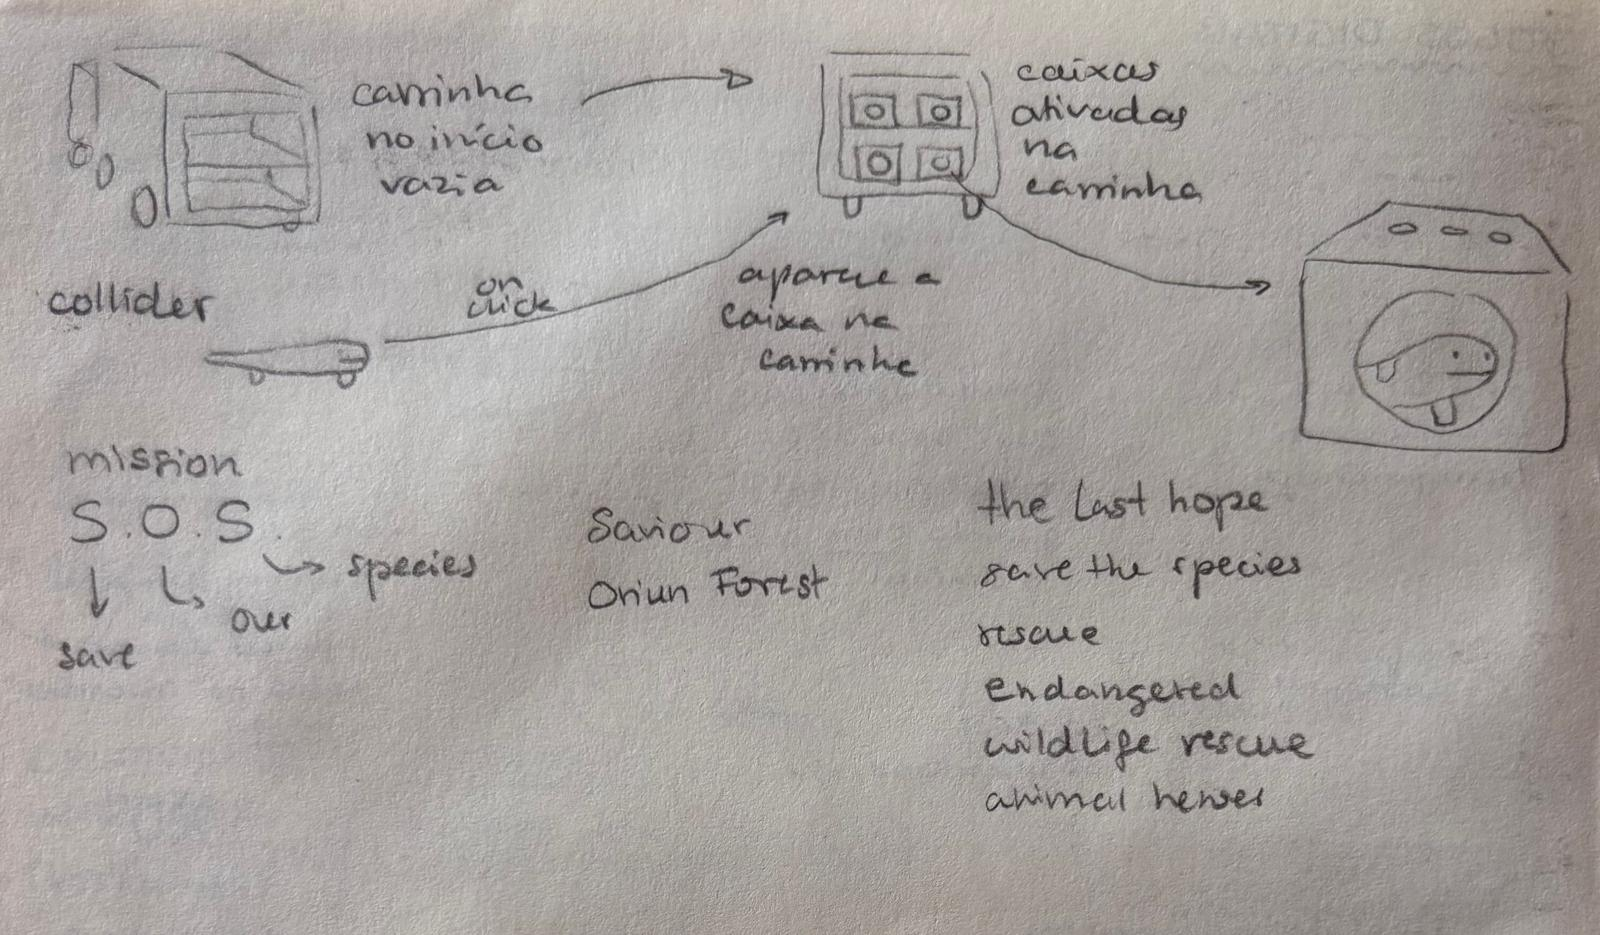 carrinha
no início
vazia
caixas
ativadas
na
carrinha
collider
on
click
aparece a
caixa na
carrinha
mission
S.O.S.
species
our
save
Saviour
Forest
the last hope
save the species
rescue
endangered
wildlife rescue
animal heroes